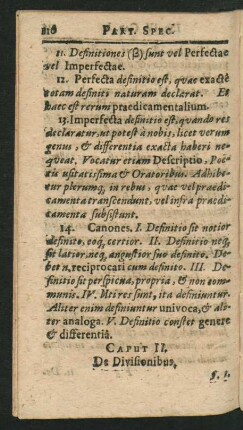 216 PART. SPEC.
11. Definitiones (β) sunt vel Perfectae
vel Imperfectae.
12. Perfecta definitio est, quae exactè
totam definiti naturam declarat. Et
haec est rerum praedicamentalium.
13. Imperfecta definitio est, quando res
declaratur, ut potest à nobis, licet verum
genus, & differentia exacta haberi ne-
queat. Vocatur etiam Descriptio, Poë-
tis usitatissima & Oratoribus. Adhibe-
tur plerumq; in rebus, quae vel praedi-
camenta transcendunt, vel infra praedi-
camenta subsistunt.
14. Canones. I. Definitio sit notior
definito, eoq; certior. II. Definitio neq;
sit latior, neq; angustior suo definito. De-
bet n. reciprocari cum definito. III. De-
finitio sit perspicua, propria, & non com-
munis. IV. Uti res sunt, ita definiuntur.
Aliter enim definiuntur univoca, & ali-
ter analoga. V. Definitio constet genere
& differentiâ.
CAPUT II.
De Divisionibus.
§. 1.